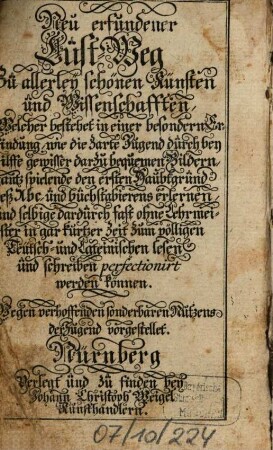 Neu erfundener
Lust-Weg
Zu allerley schönen Künsten
und Wissenschafften
Welcher bestehet in einer besondern Er-
findung, wie die zarte Jugend durch bey
Hülffe gewisser darzu bequemen Bildern,
gantz spielende den ersten Haubtgrund
deß Abc. und buchstabierens erlernen
und selbige dardurch fast ohne Lehrmei-
ster in gar kurtzer Zeit zum völligen
Teutsch- und Lateinischen lesen
und schreiben perfectionirt
werden können.
Wegen verhoffenden sonderbaren Nutzens
der Jugend vorgestellet.
Nürnberg
Verlegt und zu finden bey
Johann Christoph Weigel
Kunsthändlern.
07/10/224